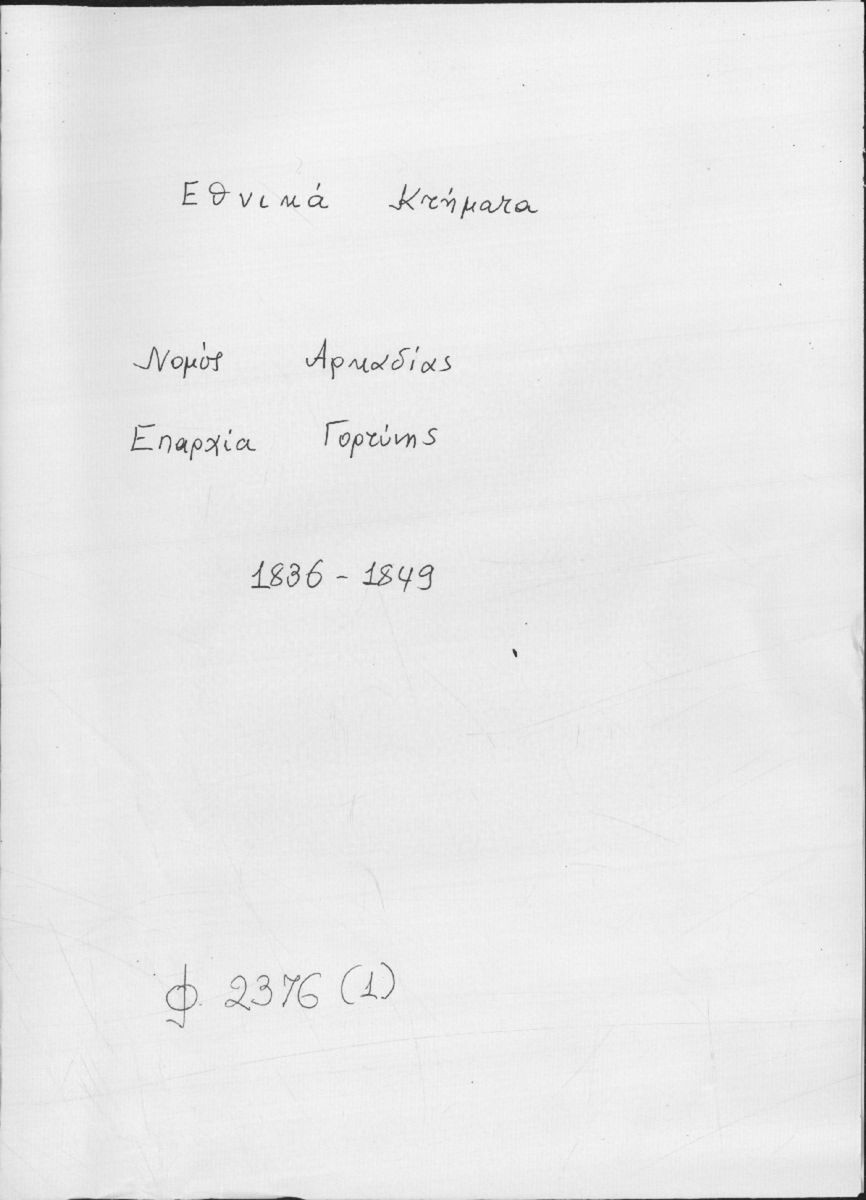 Εθνικά Κτήματα
Νομός Αρκαδίας
Επαρχία Γορτύνης
1836 - 1849
Φ. 2376 (1)